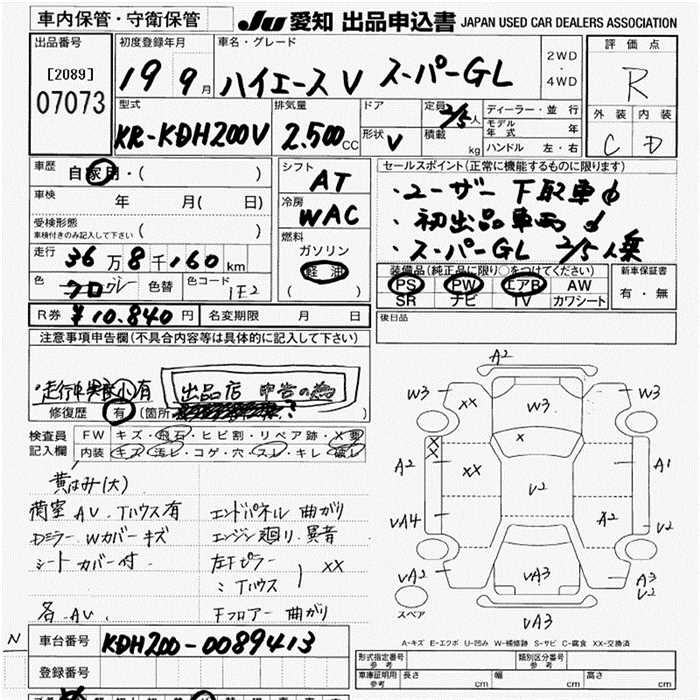 車内保管・守衛保管
JU 愛知 出品申込書 JAPAN USED CAR DEALERS ASSOCIATION
出品番号
[2089]
07073
初度登録年月
19 9月
車名・グレード
ハイエース V スーパーGL
2WD
・
4WD
評価点
R
外装 内装
C D
型式
KR-KDH200V
排気量
2.500cc
ドア
形状 V
定員 2/5人
積載 kg
ディーラー・並行
モデル年式 年
ハンドル 左・右
車歴 自家用・( )
車検 年 月( 日)
受検形態
車検付きのみ記入して下さい ( )
走行 36万8千160km
色 クロ グレー 色替 色コード 1E2
シフト
AT
冷房
WAC
燃料
ガソリン
軽油
( )
セールスポイント(正常に機能するものに限ります)
・ユーザー下取車
・初出品車両
・スーパーGL 2/5人乗
装備品(純正品に限り○をつけてください)
PS PW エアB AW
SR ナビ TV カワシート
新車保証書
有・無
R券 ¥10.840円 名変期限 月 日
後日品
注意事項申告欄(不具合内容等は具体的に記入して下さい)
・走行車実験小有
出品店 申告の為
修復歴 有 (箇所 ? )
検査員記入欄
FW キズ・飛石・ヒビ割・リペア跡・X要
内装 キズ・汚レ・コゲ・穴・スレ・キレ・破レ
黄ばみ(大)
荷室 AU、Tハウス有 エンドパネル 曲がり
Dミラー Wカバー キズ エンジン廻り、異音
シートカバー付 左Fピラー
ミTハウス XX
各AU、 Fフロアー 曲がり
A2
W3 XX W3 W3
X
X
X
A2 XX V2 A2 A1
VA4 V2
VA2 VA3 A3
V2
スペア VA3
A-キズ E-エクボ U-凹み W-補修跡 S-サビ C-腐食 XX-交換済
N
車台番号 KDH200-0089413
登録番号
形式指定番号
参考
類別区分番号
参考
車庫証明用
参考
長さ cm 幅 cm 高さ cm